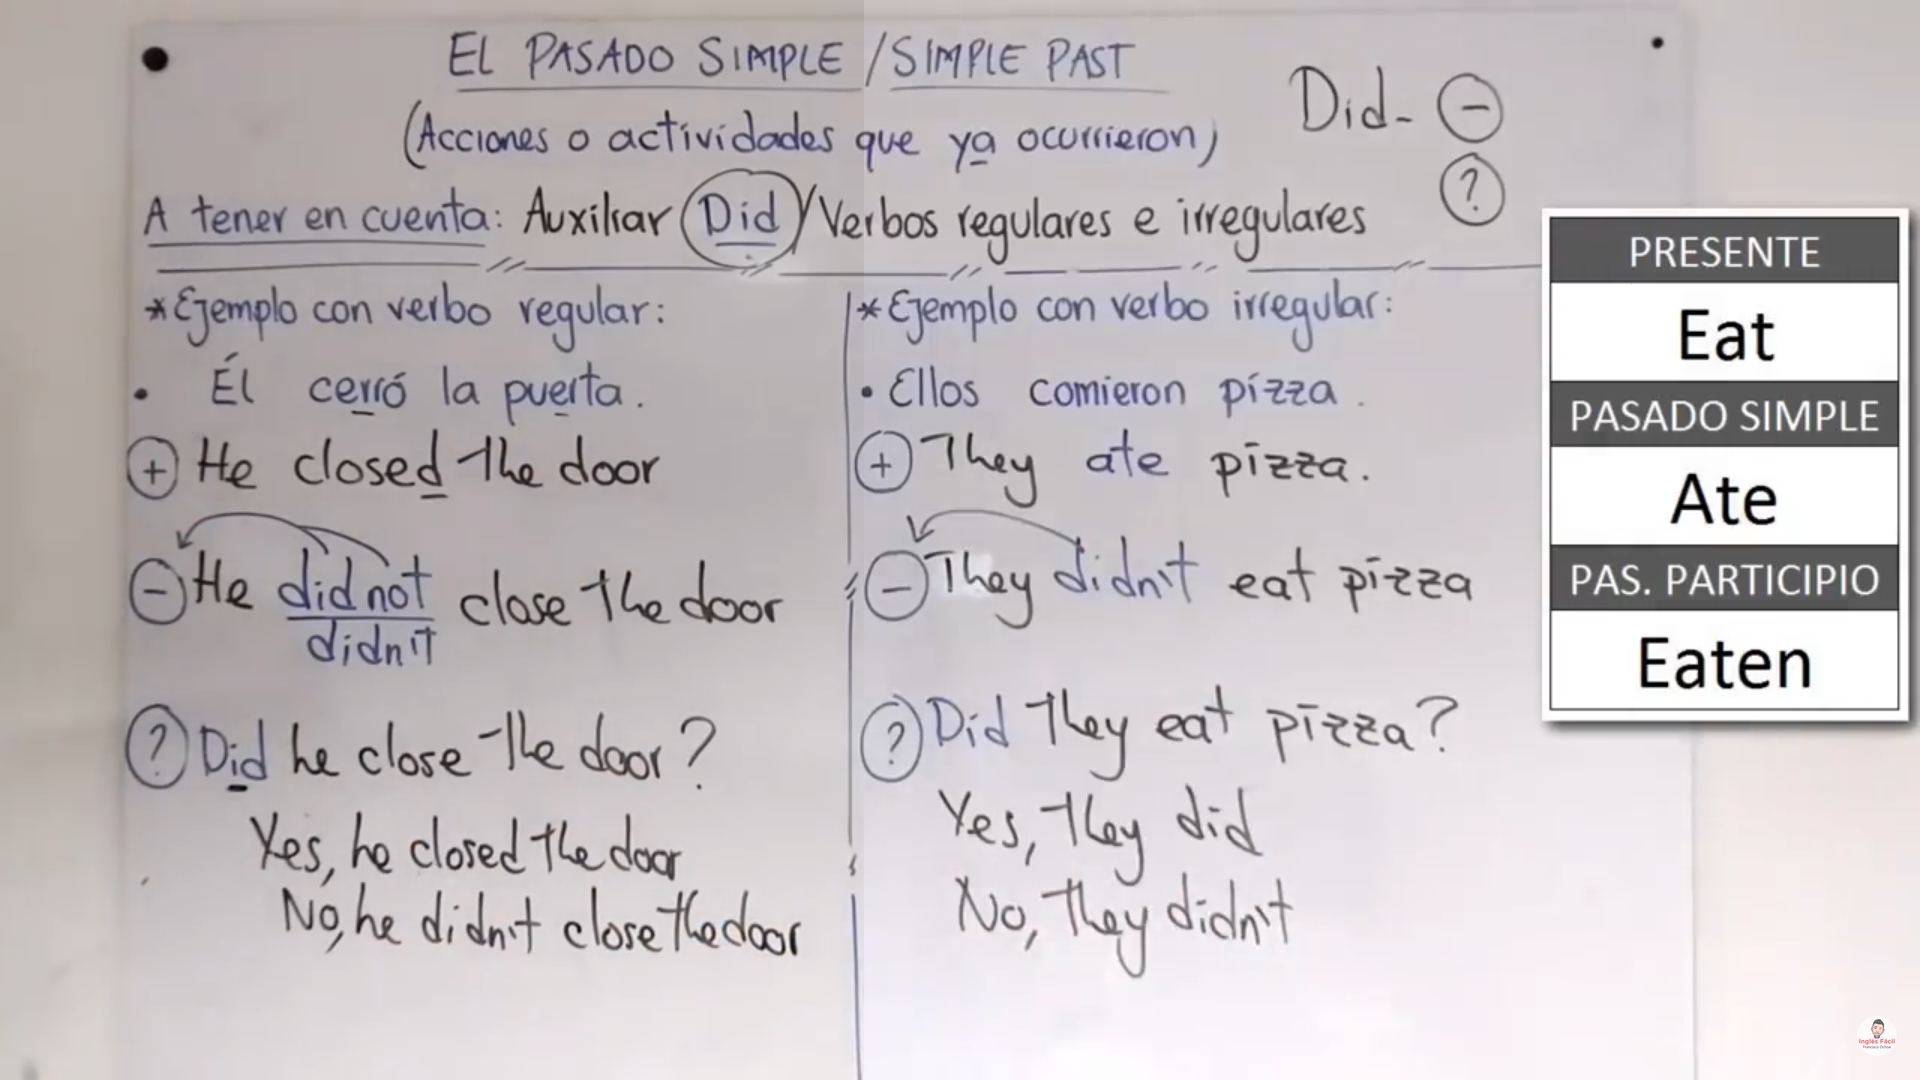 EL PASADO SIMPLE / SIMPLE PAST
(Acciones o actividades que ya ocurrieron)
Did - (-)
(?)
A tener en cuenta: Auxiliar Did / Verbos regulares e irregulares
* Ejemplo con verbo regular:
• Él cerró la puerta.
+ He closed the door
- He did not close the door
didn't
? Did he close the door?
Yes, he closed the door
No, he didn't close the door
* Ejemplo con verbo irregular:
• Ellos comieron pizza.
+ They ate pizza.
- They didn't eat pizza
? Did they eat pizza?
Yes, they did
No, they didn't
PRESENTE
Eat
PASADO SIMPLE
Ate
PAS. PARTICIPIO
Eaten
Inglés Fácil